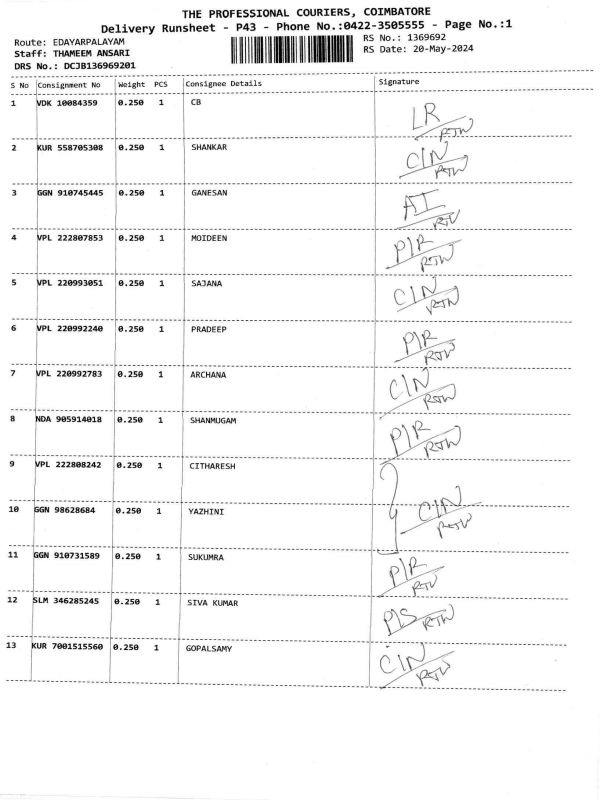 THE PROFESSIONAL COURIERS, COIMBATORE
Delivery Runsheet - P43 - Phone No.:0422-3505555 - Page No.:1
Route: EDAYARPALAYAM
RS No.: 1369692
Staff: THAMEEM ANSARI
RS Date: 20-May-2024
DRS No.: DCJB136969201
S No Consignment No Weight PCS Consignee Details Signature
1 VDK 10084359 0.250 1 CB
LR
RTW
2 KUR 558705308 0.250 1 SHANKAR
CIN
RTW
3 GGN 910745445 0.250 1 GANESAN
AI
RTW
4 VPL 222807853 0.250 1 MOIDEEN
PIR
RTW
5 VPL 220993051 0.250 1 SAJANA
CIN
RTW
6 VPL 220992240 0.250 1 PRADEEP
PIR
RTW
7 VPL 220992783 0.250 1 ARCHANA
CIN
RTW
8 NDA 905914018 0.250 1 SHANMUGAM
PIR
RTW
9 VPL 222808242 0.250 1 CITHARESH
10 GGN 98628684 0.250 1 YAZHINI
CIN
RTW
11 GGN 910731589 0.250 1 SUKUMRA
PIR
RTW
12 SLM 346285245 0.250 1 SIVA KUMAR
PIS RTW
13 KUR 7001515560 0.250 1 GOPALSAMY
CIN
RTW